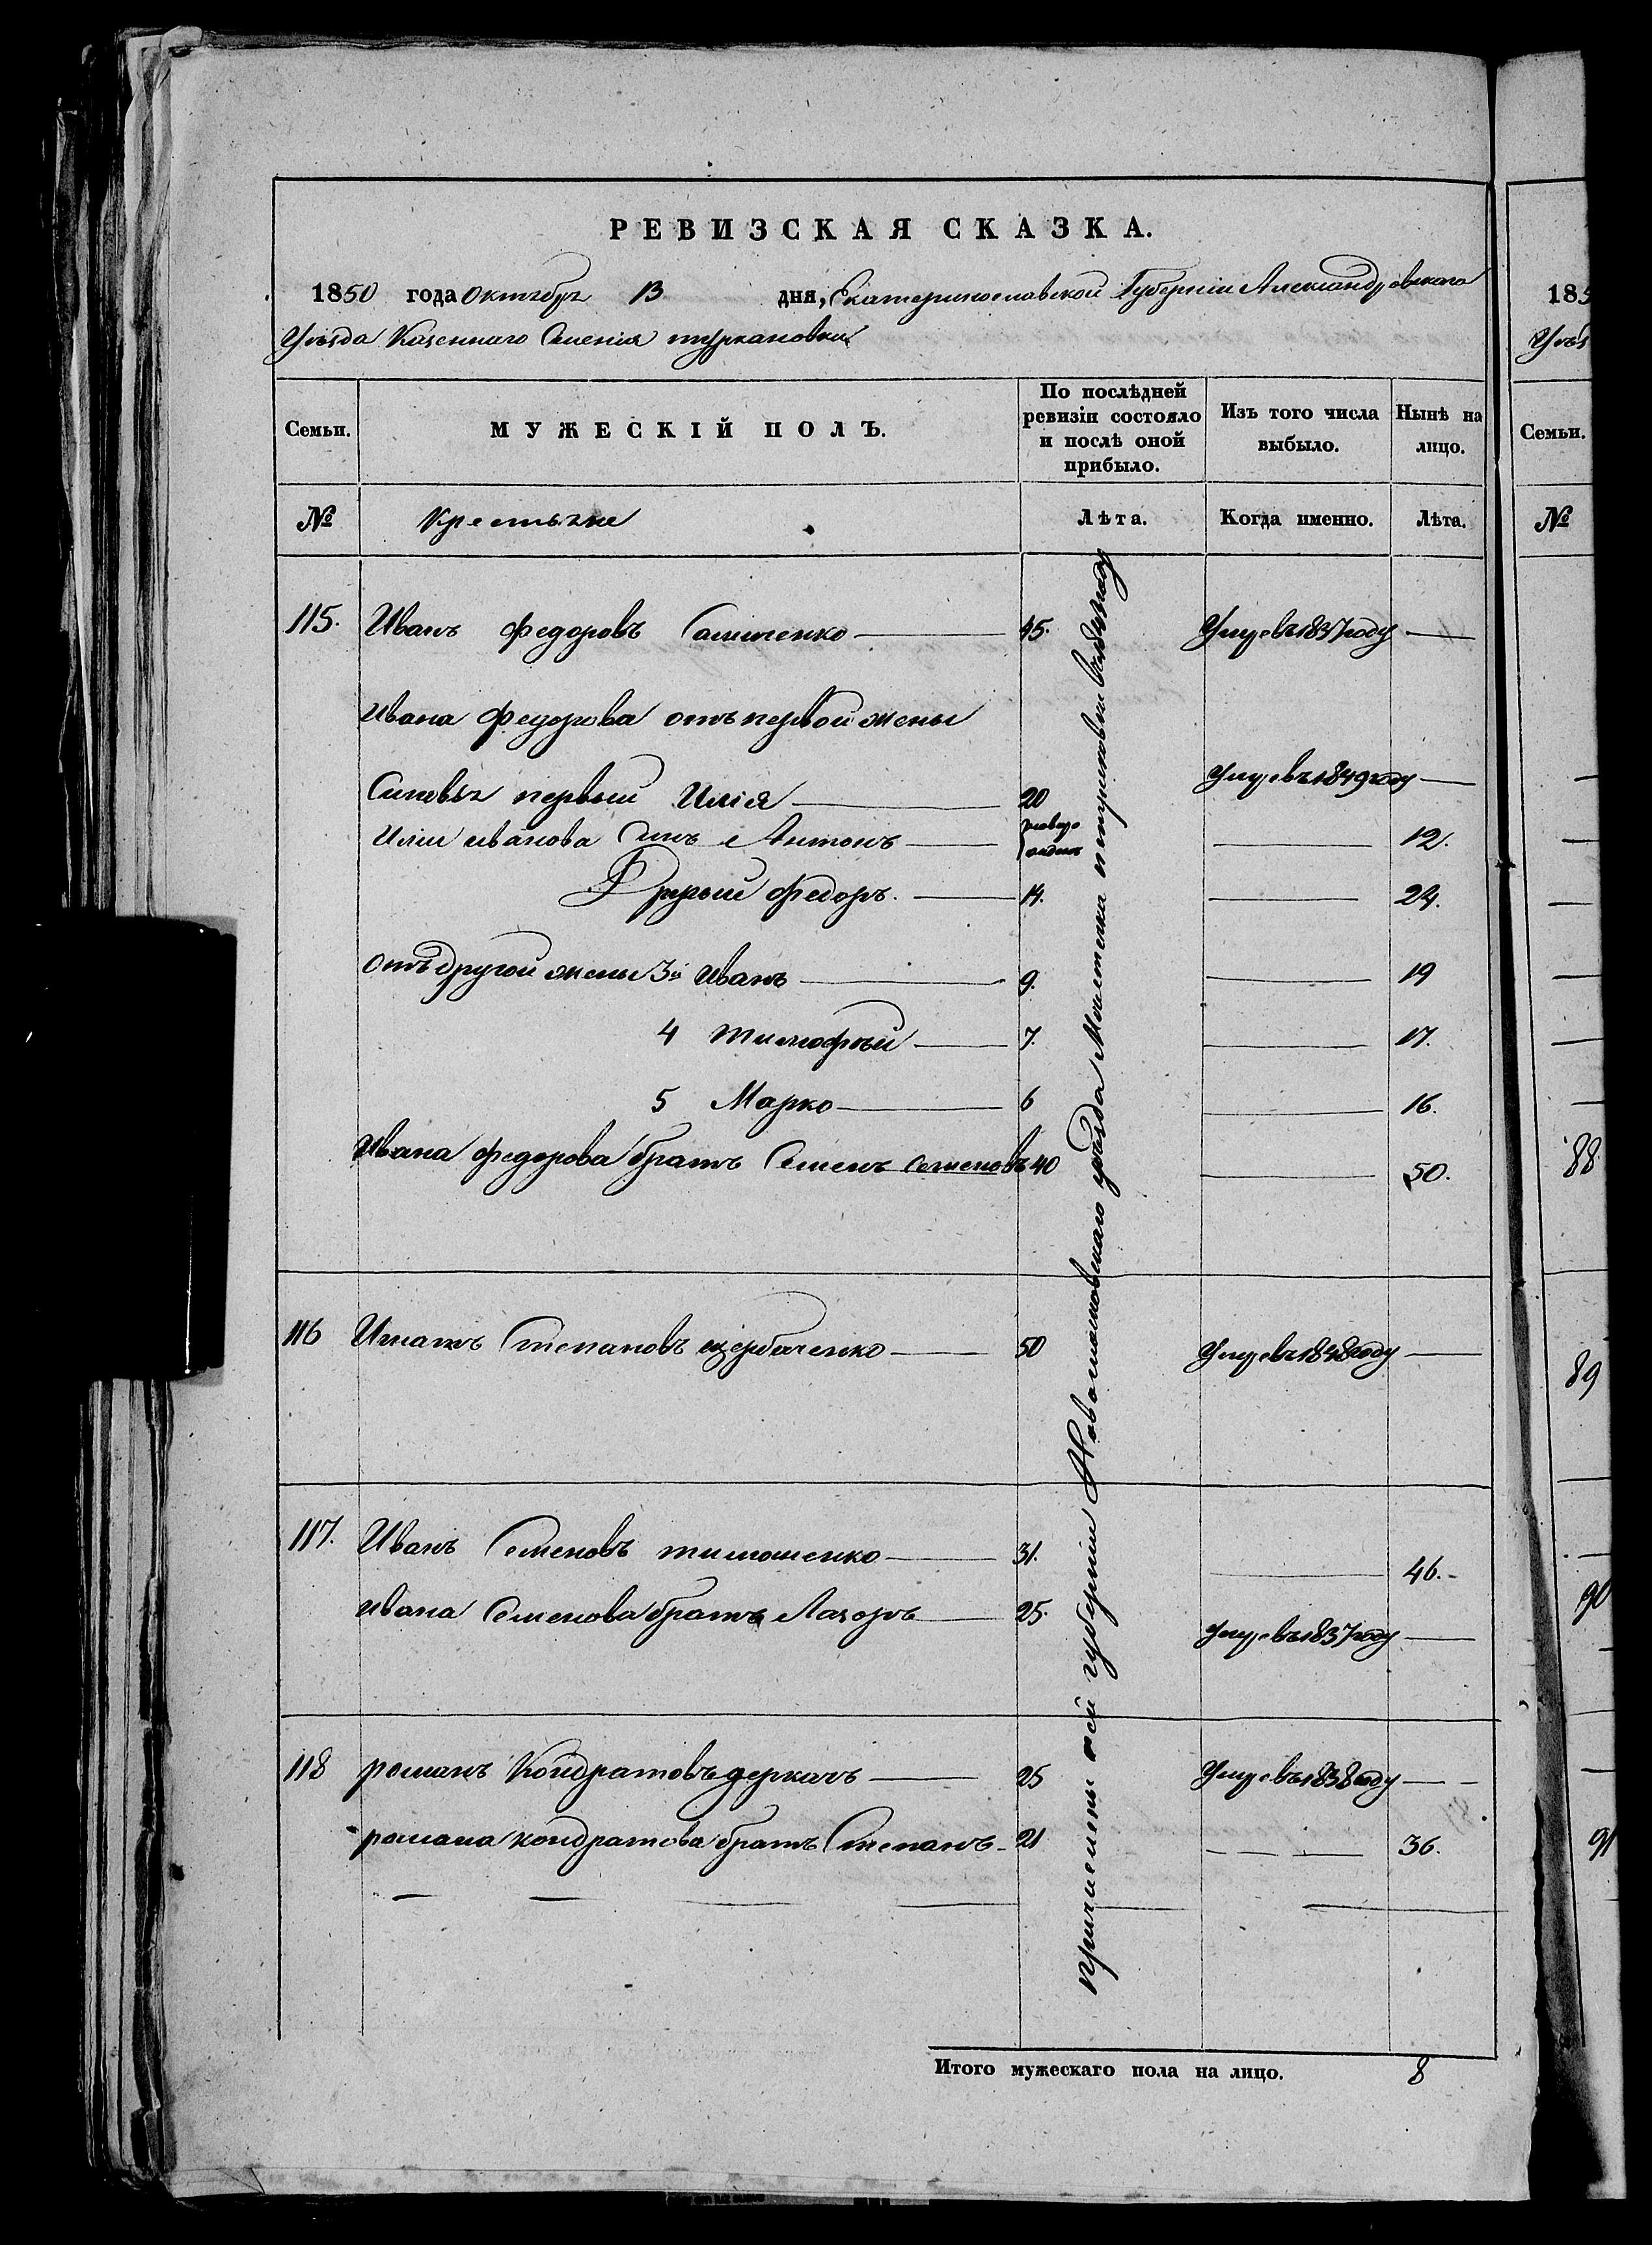 РЕВИЗСКАЯ СКАЗКА.
1850 года октября 13 дня, Екатеринославской Губерніи Александровскаго
Уѣзда Казеннаго Селенія туркановки
Семьи.
МУЖЕСКІЙ ПОЛЪ.
По послѣдней ревизіи состояло и послѣ оной прибыло.
Изъ того числа выбыло.
Нынѣ на лицо.
№ Крестьяне Лѣта. Когда именно. Лѣта.
115. Иванъ федоровъ 45. Умеръ въ 1837 году —
Ивана федорова отъ первой жены
Синовья первый Илія 20 Умеръ въ 1849 году —
Иліи иванова Сынъ Антонъ — 12.
Другый федоръ. 14. — 24.
отъ другой жены 3й Иванъ 9. — 19
4 тимофѣй 7. — 17.
5 Марко 6 — 16.
Ивана федорова братъ Семенъ семеновъ 40 — 50.
116 Игнатъ Степановъ щербаченко 50 Умеръ въ 1848 году —
117. Иванъ Семеновъ тимошенко 31. — 46.
ивана Семенова братъ Лазорь 25. Умеръ въ 1837 году —
118 романъ Кондратовъ деркачъ 25 Умеръ въ 1838 году —
романа кондратова братъ Степанъ 21 — 36.
причислены сей губерніи Новомосковскаго уѣзда Местечка петриковки въ году
Итого мужескаго пола на лицо. 8
185
Уѣз
Семьи.
№
88
89
90
91